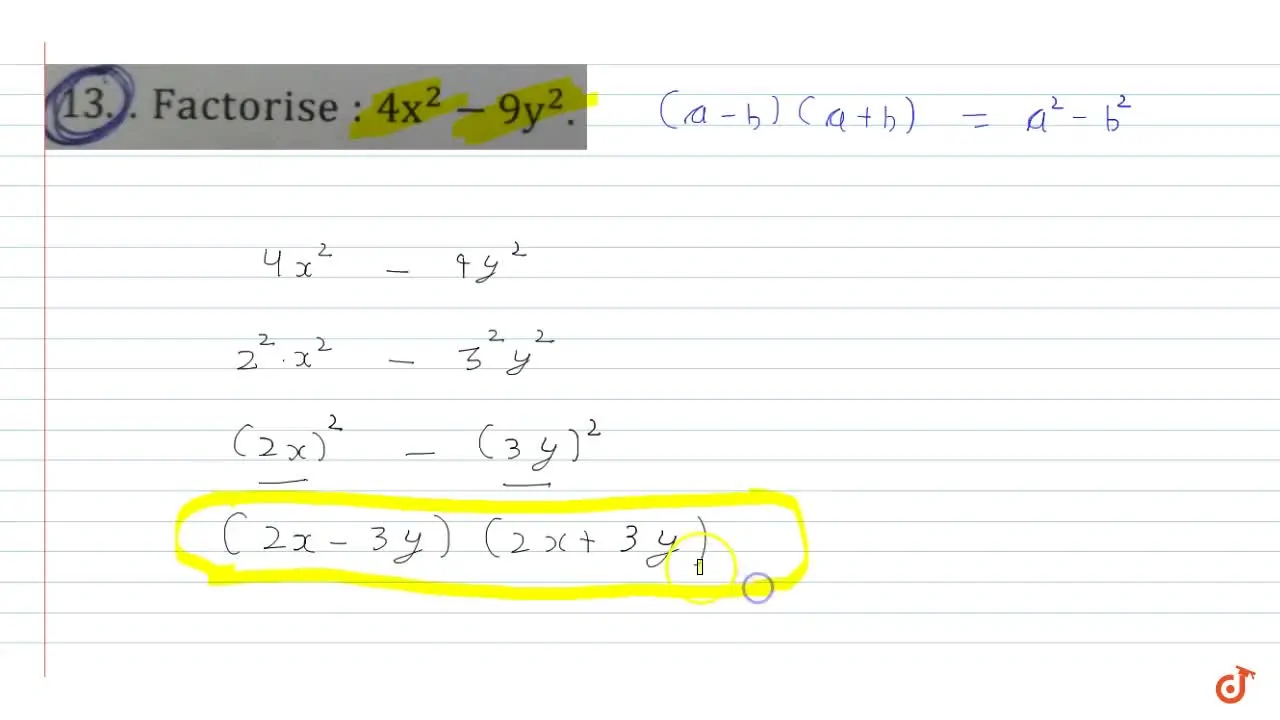 13. . Factorise : 4x² − 9y².
(a-b)(a+b) = a²-b²
4x² - 9y²
2²·x² - 3²y²
(2x)² - (3y)²
(2x-3y)(2x+3y)